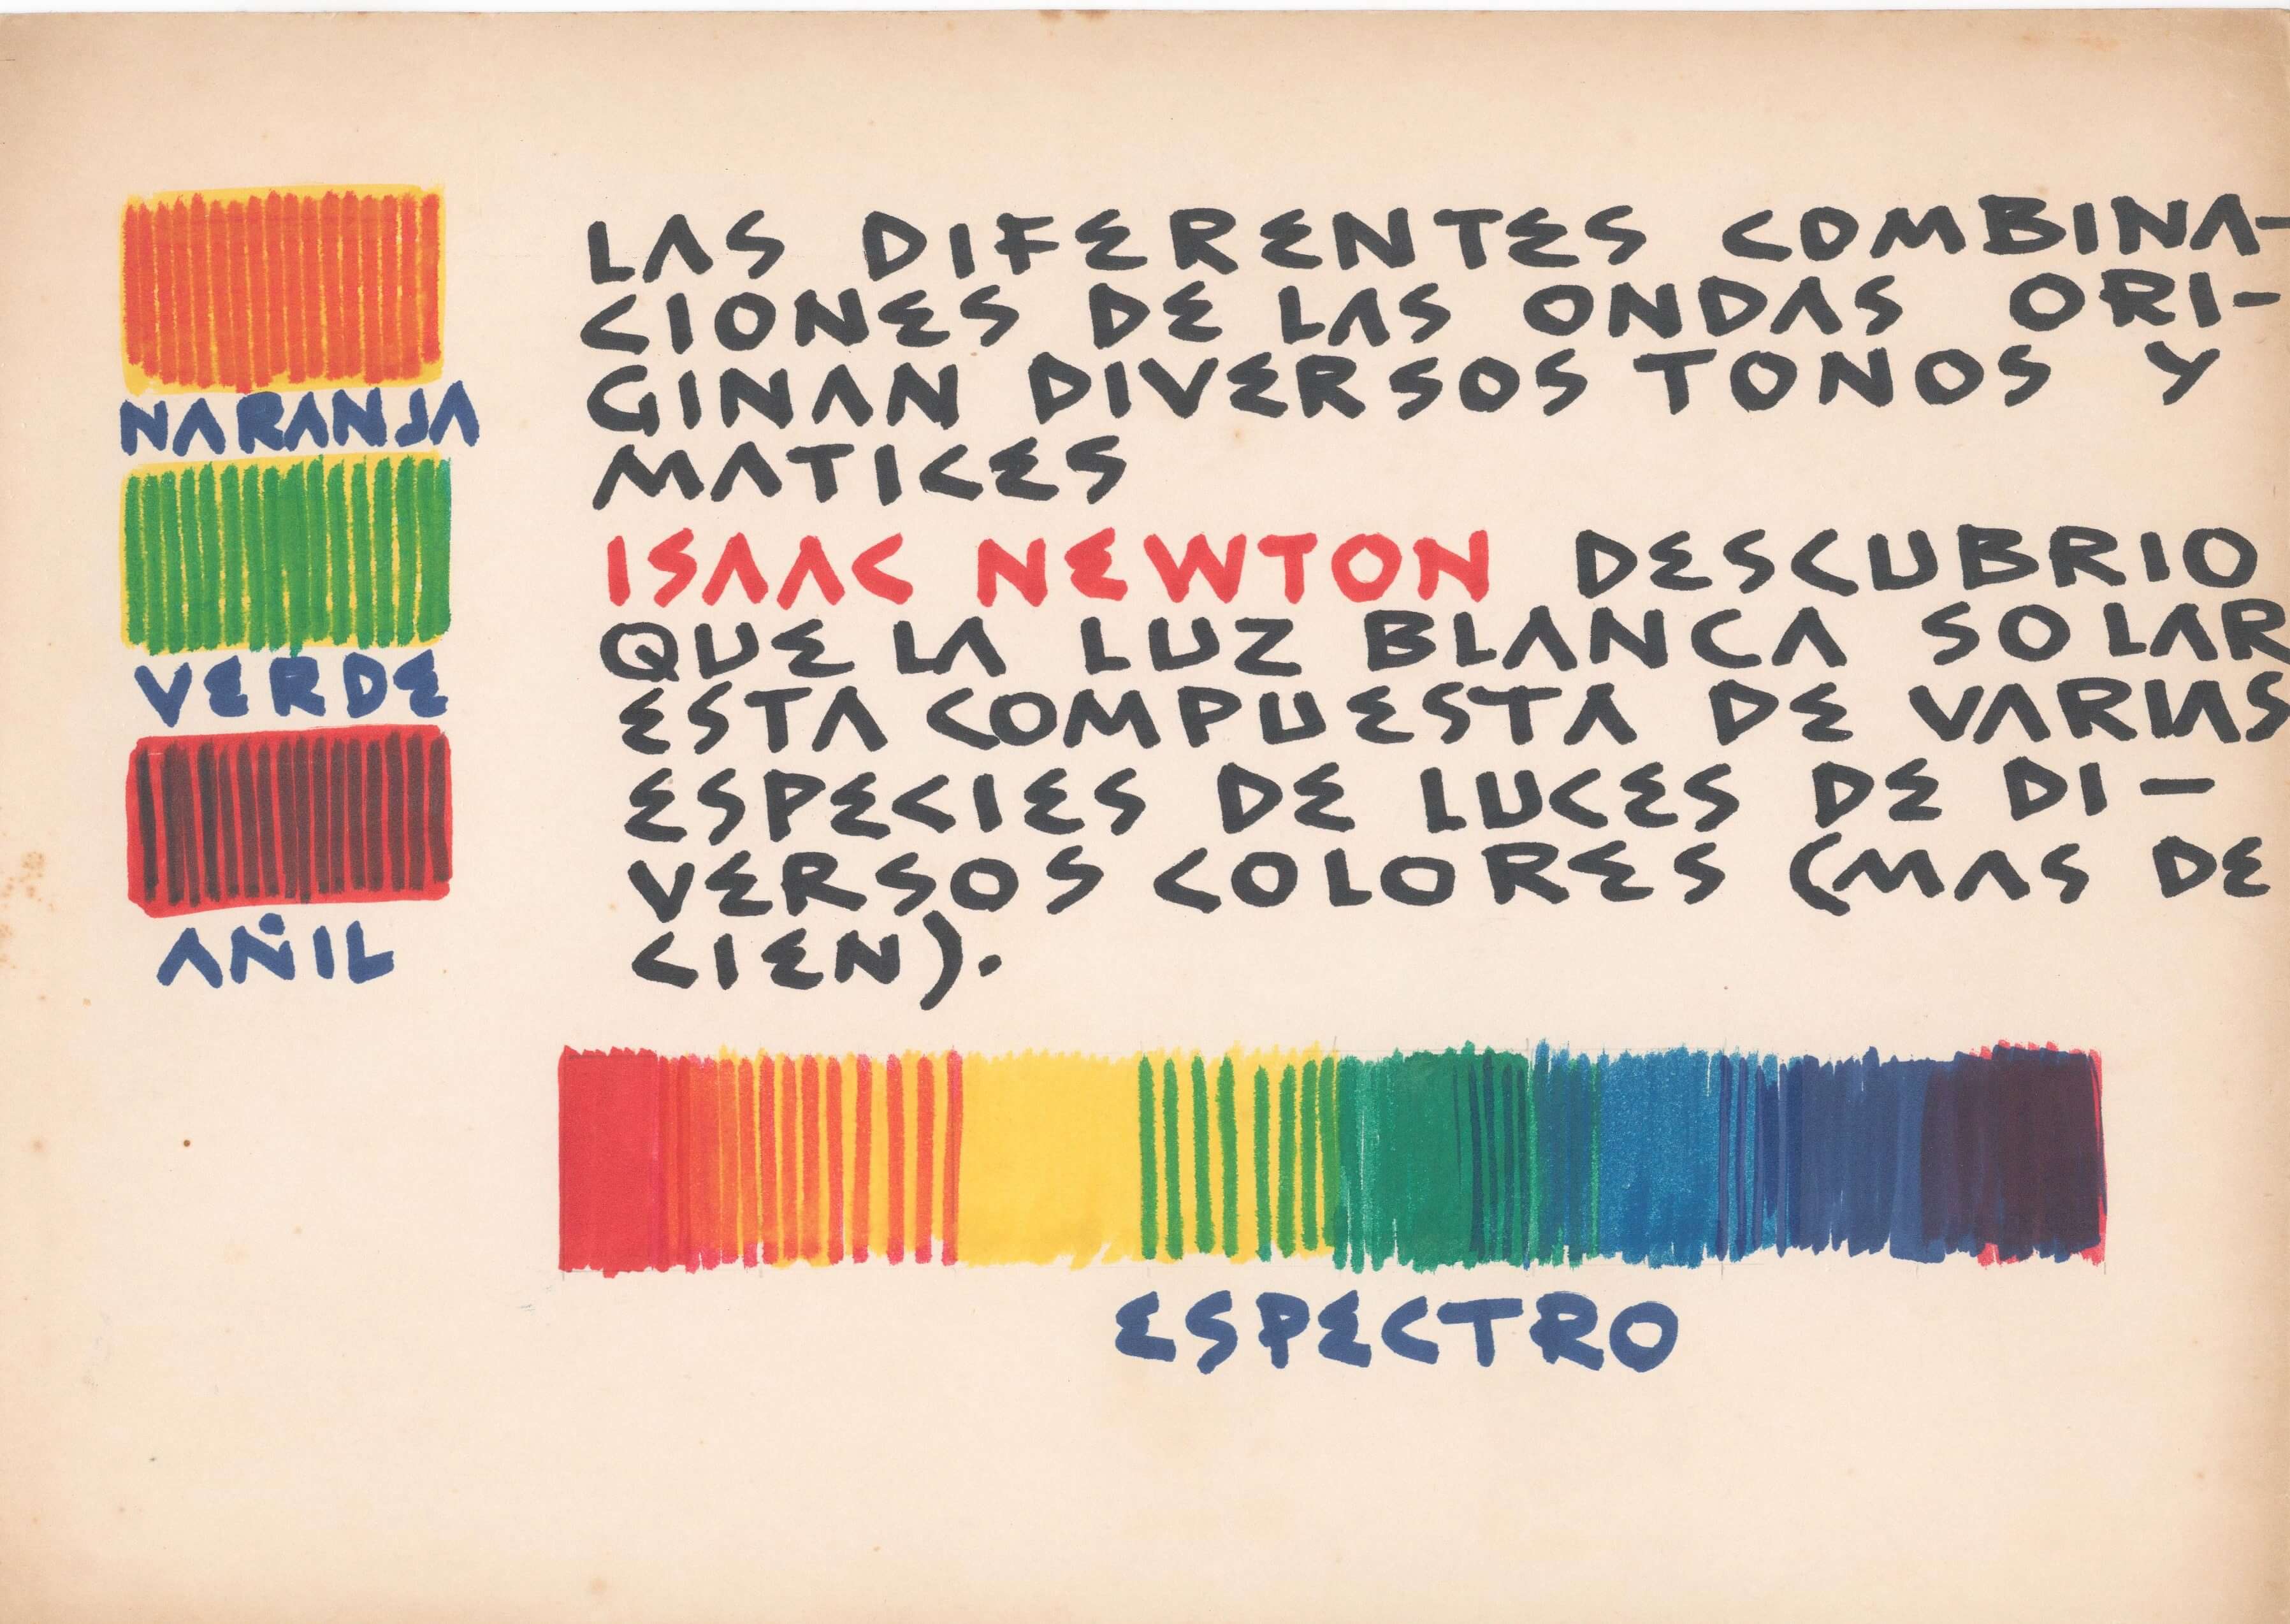 NARANJA
VERDE
AÑIL
LAS DIFERENTES COMBINA-
CIONES DE LAS ONDAS ORI-
GINAN DIVERSOS TONOS Y
MATICES
ISAAC NEWTON DESCUBRIO
QUE LA LUZ BLANCA SOLAR
ESTA COMPUESTA DE VARIAS
ESPECIES DE LUCES DE DI-
VERSOS COLORES (MAS DE
CIEN).
ESPECTRO